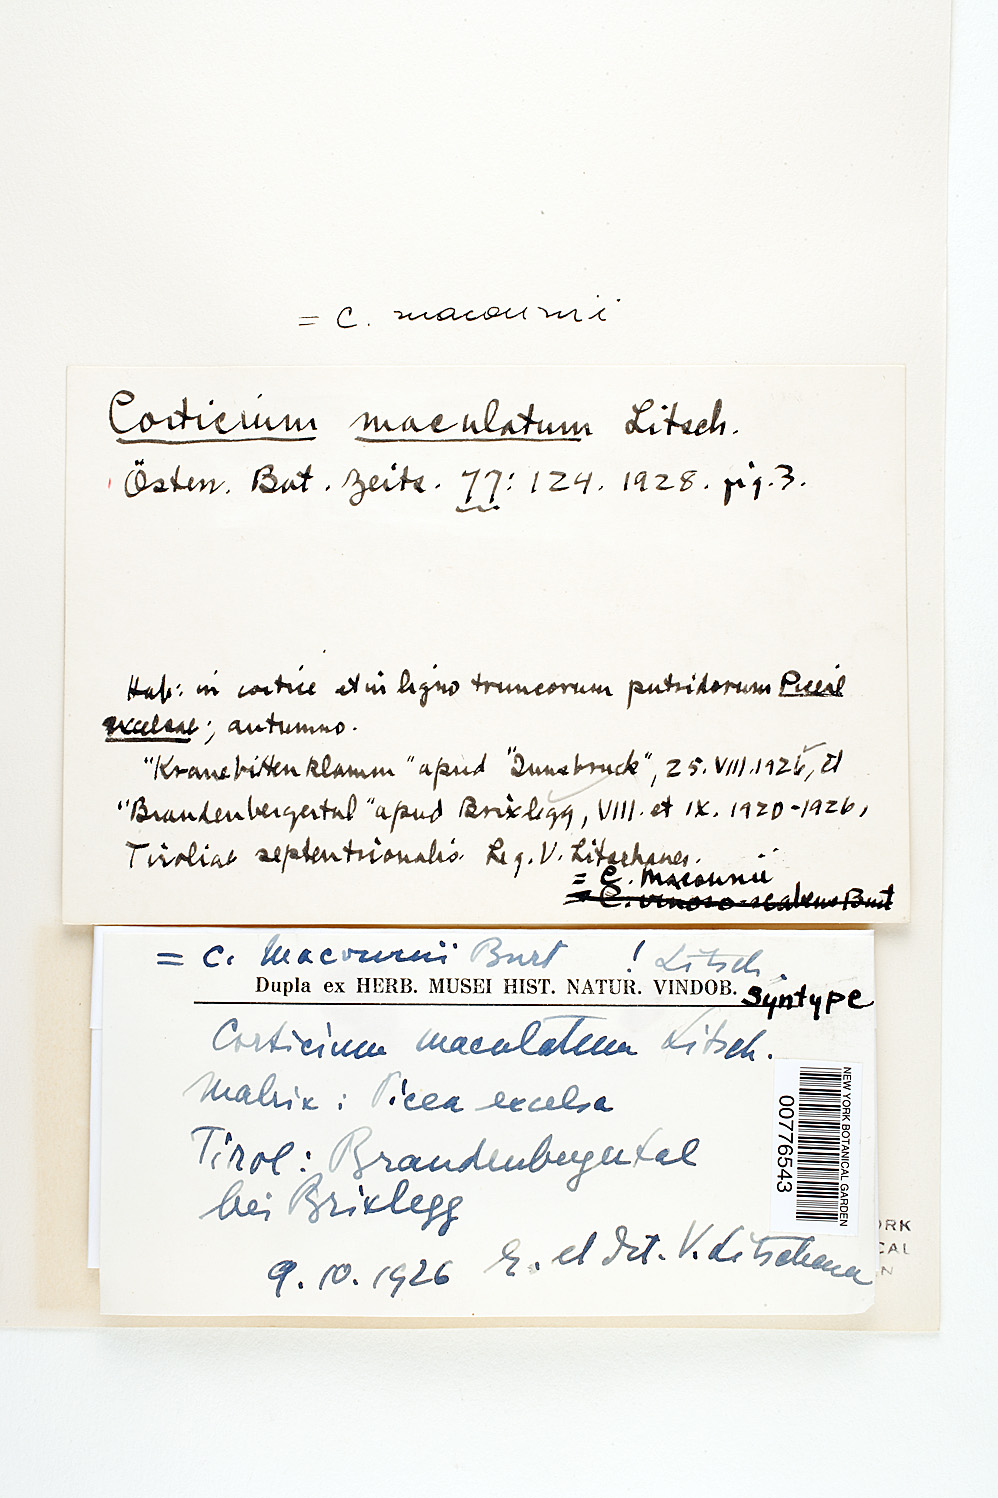 = C. macounii
Corticium maculatum Litsch.
Österr. Bot. Zeits. 77: 124. 1928. fig. 3.
Hab: in cortice et in ligno truncorum putridorum Piceae
excelsae; autumno.
"Kranebittenklamm" apud "Innsbruck", 25.VIII.1926, et
"Brandenbergertal" apud Brixlegg, VIII. et IX. 1920-1926,
Tiroliae septentrionalis. Leg. V. Litschauer.
= C. Macounii
= C. vinoso-scabens Burt
= C. Macounii Burt ! Litsch.
Dupla ex HERB. MUSEI HIST. NATUR. VINDOB.
Syntype
Corticium maculatum Litsch.
Matrix: Picea excelsa
Tirol: Brandenbergertal
bei Brixlegg
9. 10. 1926 et det. V. Litschauer
NEW YORK BOTANICAL GARDEN
00776543
ORK
CAL
N